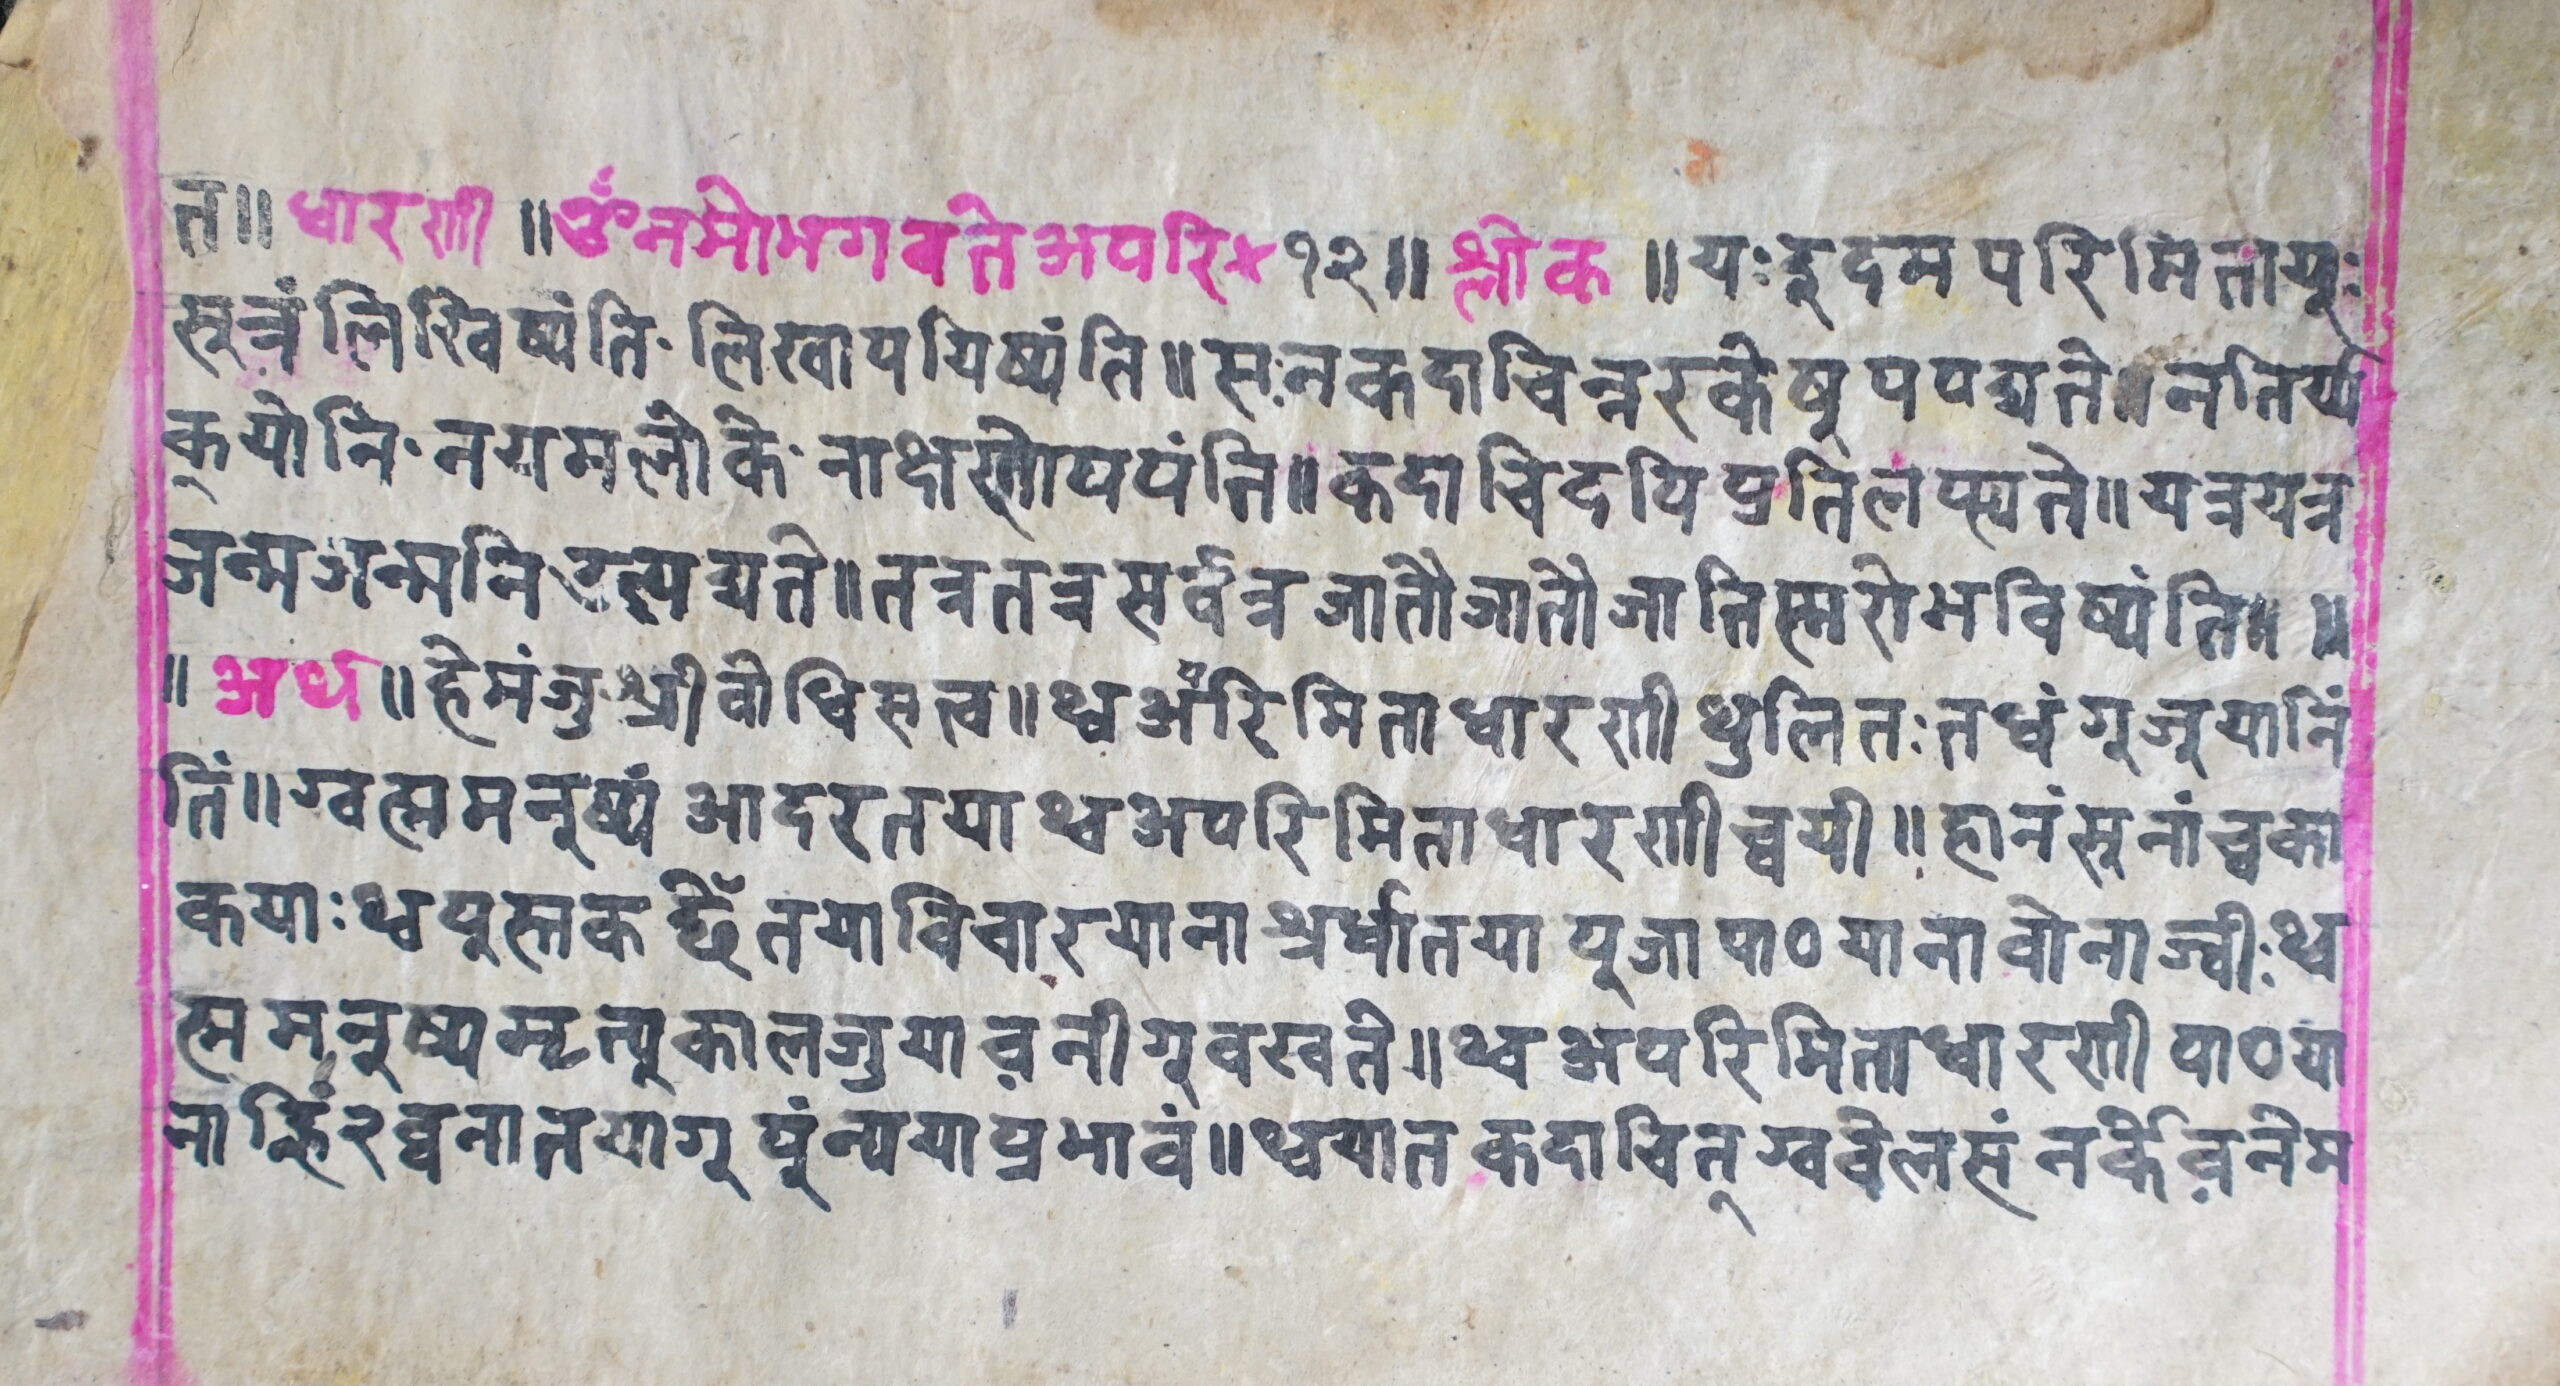 त॥ धारणी ॥ ॐ नमो भगवते अपरि× १२॥ श्लोक ॥ यः इदम परिमितायुः
सूत्रं लिखिष्यंति· लिखापयिष्यंति॥ सः न कदाचिन्नरकेषूपपद्यते॥ न तिर्य्य
क्योनि· न यमलोके· नाक्षणोपपंति॥ कदाचिदपि प्रतिलप्स्यते॥ यत्र यत्र
जन्मजन्मनि उत्पद्यते॥ तत्र तत्र सर्वत्र जातौ जातौ जातिस्मरो भविष्यंति॥ ॥
॥ अर्थ ॥ हे मंजुश्री वोधिसत्व॥ थ्व अँरिमिता धारणी थुलि तः तध्वं गू जूयानिं
तिं॥ ग्वह्म मनुष्यं आदरतया थ्व अपरिमिता धारणी च्वयी॥ हानं सूनां च्वका
कयाः थ्व पुस्तक छेँ तया विचारयाना श्रर्धातया पूजा पाठ याना वोना ज्वीः थ्व
ह्म मनुष्य मृत्युकाल जुया व़नीगू वखते॥ थ्व अपरिमिता धारणी पाठ या
ना न्हिं२ व्वना तयागू पुंन्यया प्रभावं॥ थ्वयात कदाचित् ग्ववेलसं नर्के व़नेम